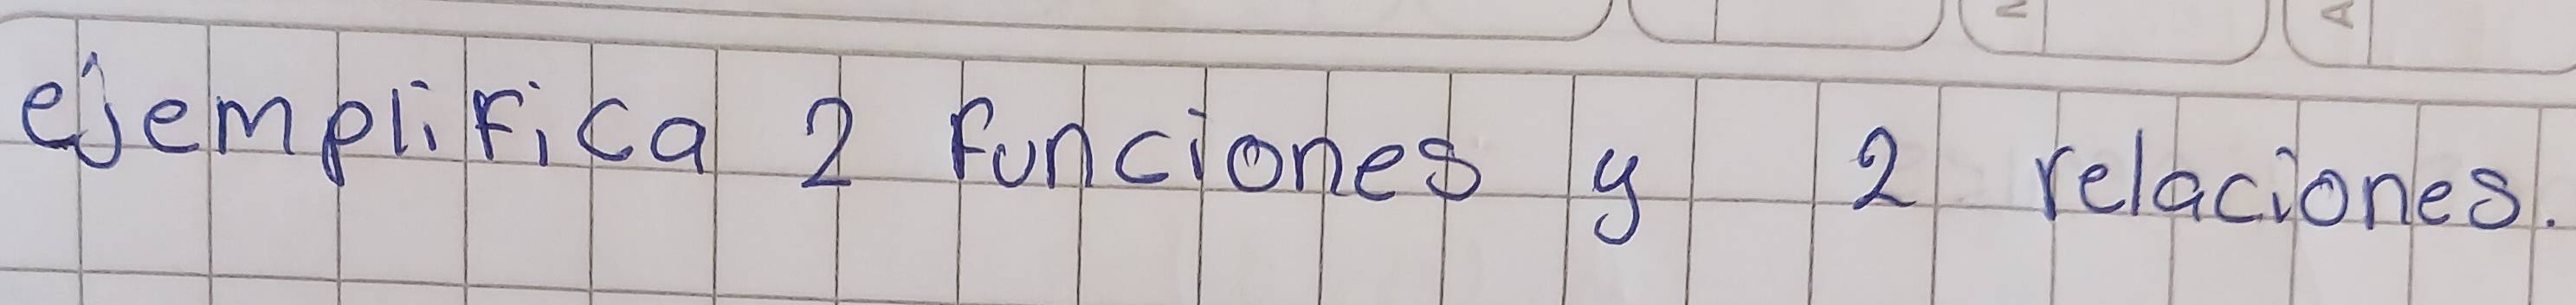 ejemplifica 2 funciones y 2 relaciones.